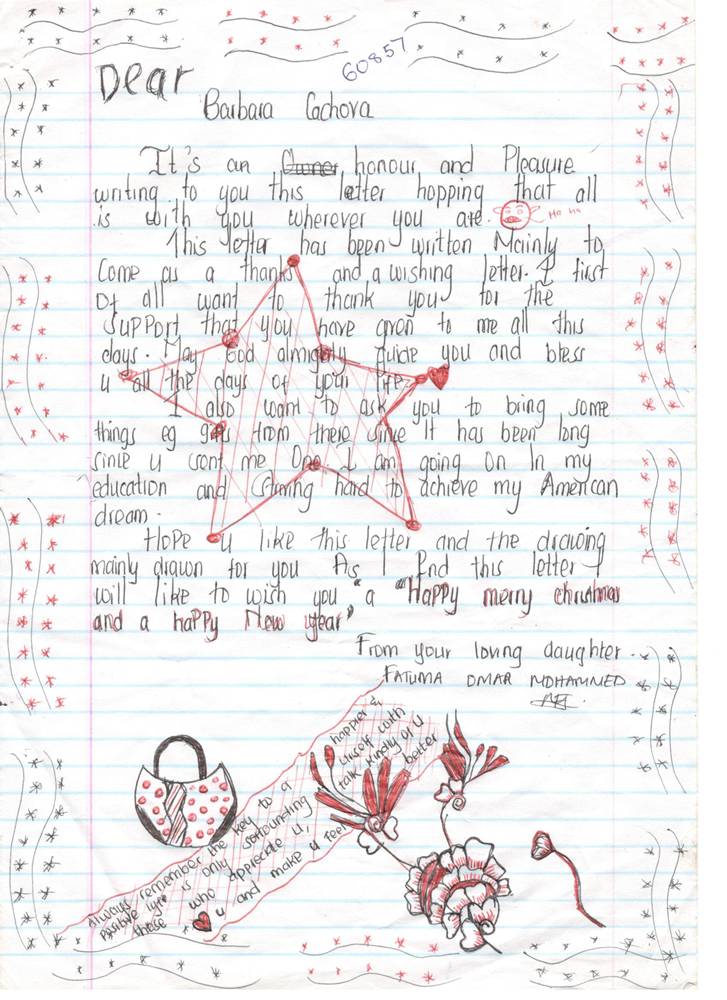 60857
Dear
Barbara Cachova
It's an honour and Pleasure
writing to you this letter hopping that all
is with you wherever you are. Ha ha
This letter has been written Mainly to
Come as a thanks and a wishing letter. I first
Of all want to thank you for the
Support that you have given to me all this
days. May God almighty guide you and bless
u all the days of your life.
I also want to ask you to bring some
things eg from there since It has been long
since u sent me One I am going On In my
education and Striving hard to achieve my American
dream.
Hope u like this letter and the drawing
mainly drawn for you As I End this letter I
will like to wish you "a "Happy merry christmas
and a happy New year"
From your loving daughter.
FATUMA OMAR MOHAMMED
Always remember the key to a happier &
positive life is only sorrounding urself with
those who appreciate u, talk kindly of u
and make u feel better